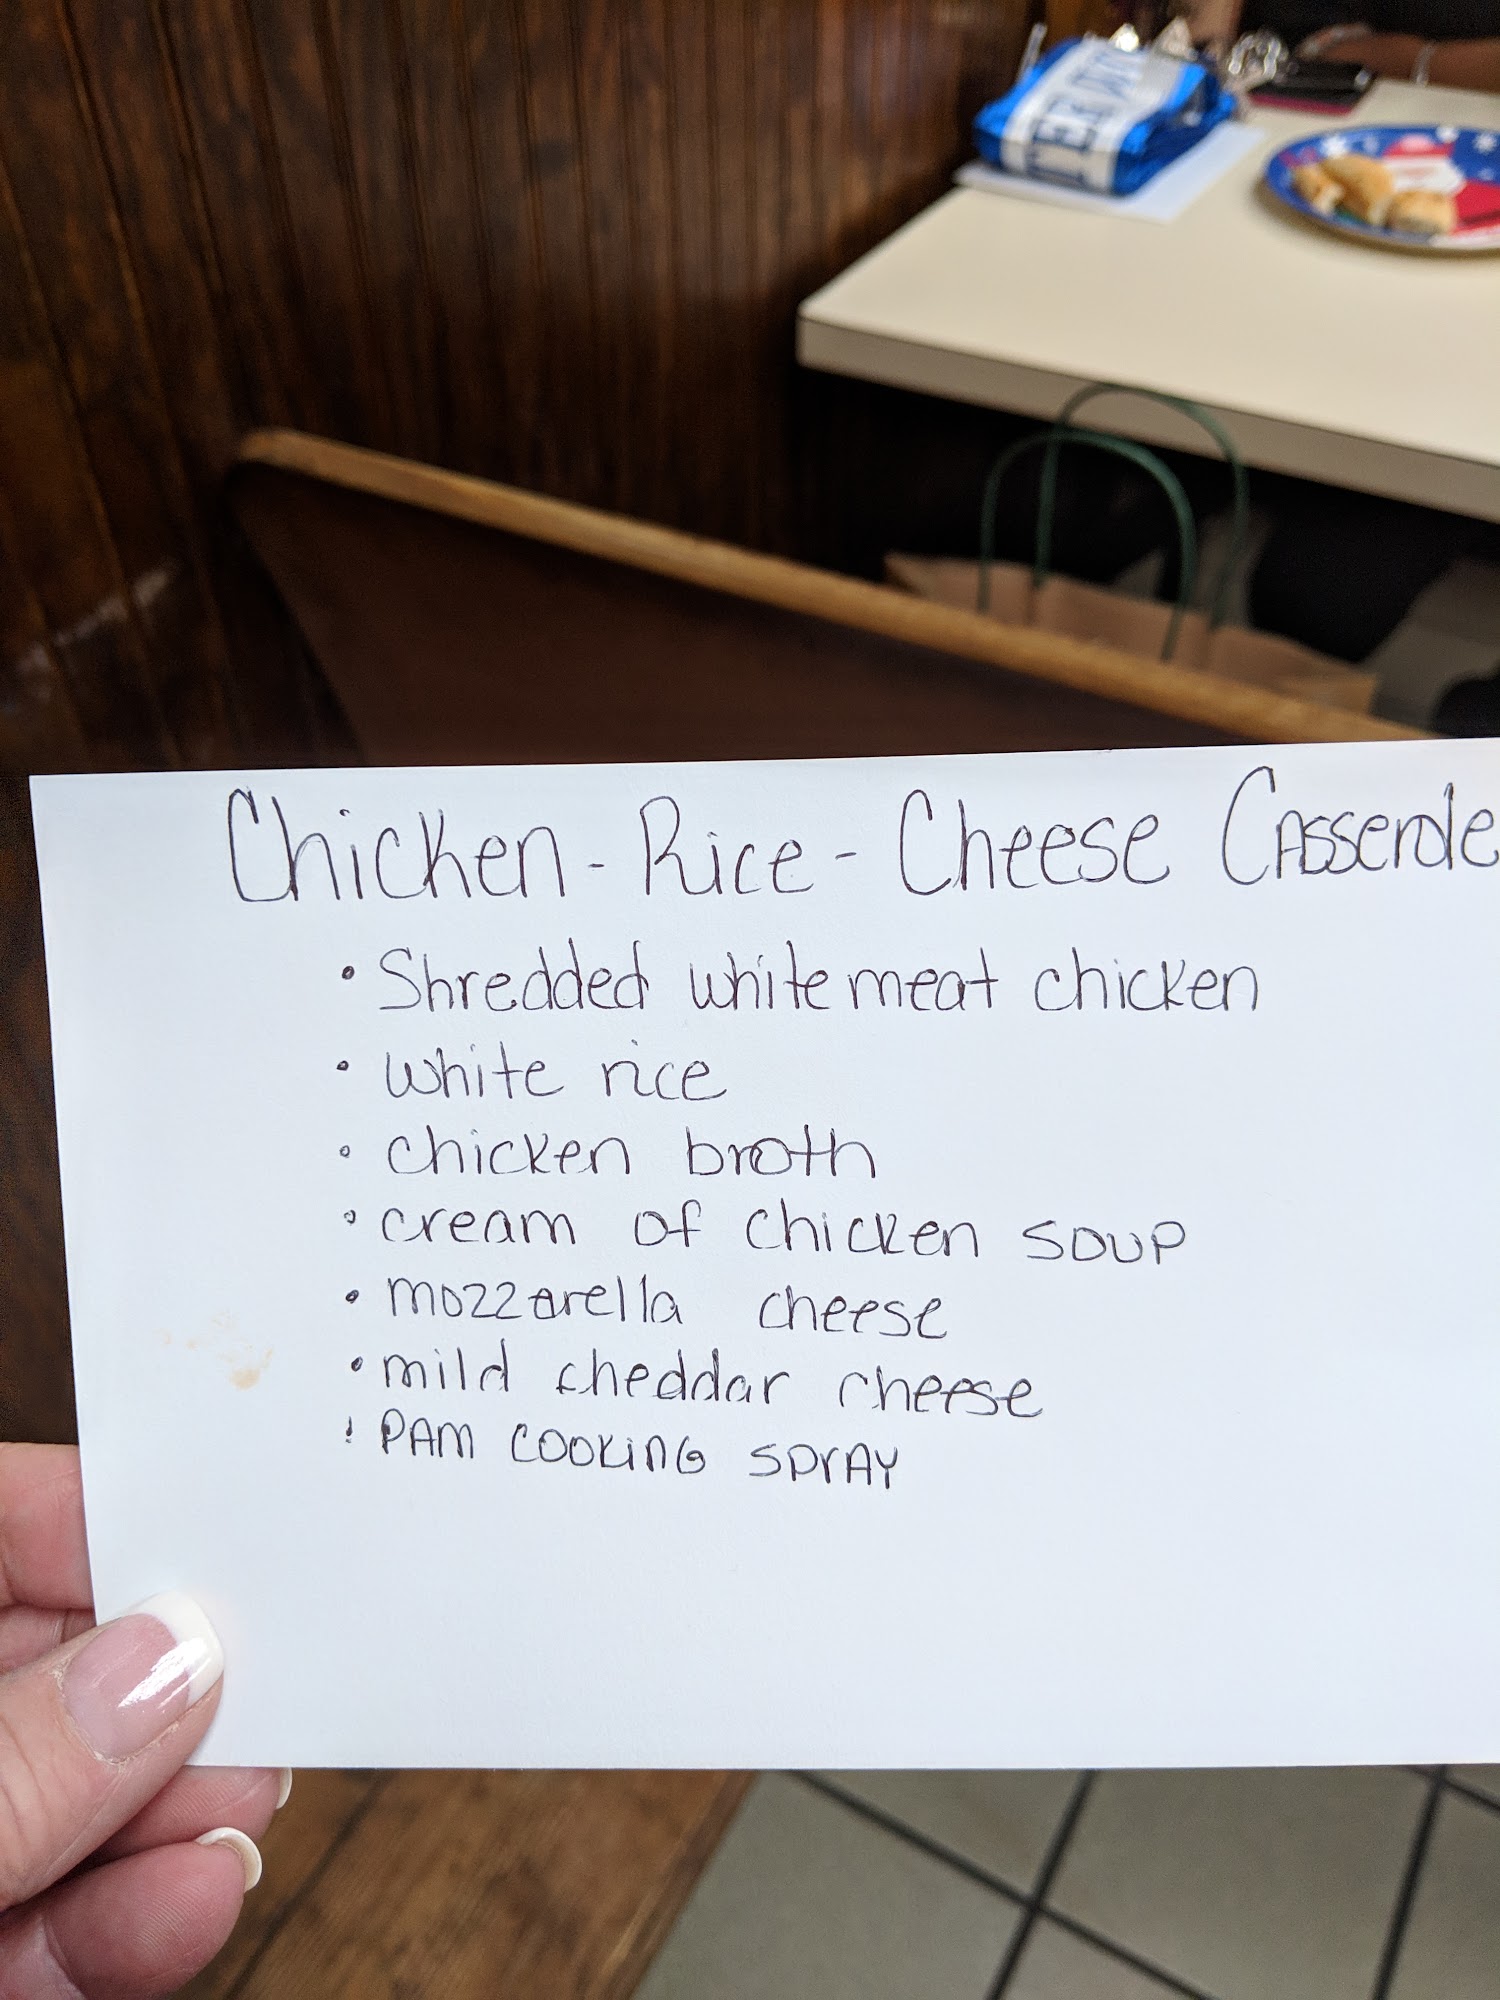 Chicken - Rice - Cheese Casserole
• Shredded white meat chicken
• white rice
• chicken broth
• cream of chicken soup
• mozzarella cheese
• mild cheddar cheese
• PAM COOKING SPRAY